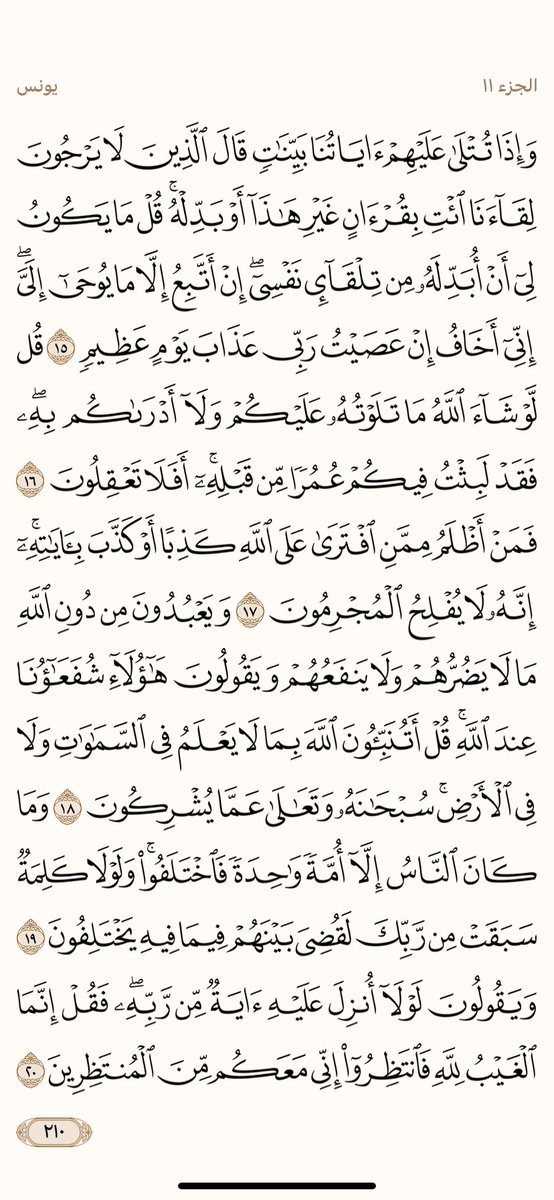 الجزء ١١
يونس
وَإِذَا تُتْلَىٰ عَلَيْهِمْ ءَايَاتُنَا بَيِّنَـٰتٍ قَالَ ٱلَّذِينَ لَا يَرْجُونَ
لِقَآءَنَا ٱئْتِ بِقُرْءَانٍ غَيْرِ هَـٰذَآ أَوْ بَدِّلْهُ ۚ قُلْ مَا يَكُونُ
لِىٓ أَنْ أُبَدِّلَهُۥ مِن تِلْقَآئِ نَفْسِىٓ ۖ إِنْ أَتَّبِعُ إِلَّا مَا يُوحَىٰٓ إِلَىَّ ۖ
إِنِّىٓ أَخَافُ إِنْ عَصَيْتُ رَبِّى عَذَابَ يَوْمٍ عَظِيمٍ ١٥ قُل
لَّوْ شَآءَ ٱللَّهُ مَا تَلَوْتُهُۥ عَلَيْكُمْ وَلَآ أَدْرَىٰكُم بِهِۦ ۖ
فَقَدْ لَبِثْتُ فِيكُمْ عُمُرًا مِّن قَبْلِهِۦٓ ۚ أَفَلَا تَعْقِلُونَ ١٦
فَمَنْ أَظْلَمُ مِمَّنِ ٱفْتَرَىٰ عَلَى ٱللَّهِ كَذِبًا أَوْ كَذَّبَ بِـَٔايَـٰتِهِۦٓ ۚ
إِنَّهُۥ لَا يُفْلِحُ ٱلْمُجْرِمُونَ ١٧ وَيَعْبُدُونَ مِن دُونِ ٱللَّهِ
مَا لَا يَضُرُّهُمْ وَلَا يَنفَعُهُمْ وَيَقُولُونَ هَـٰٓؤُلَآءِ شُفَعَـٰٓؤُنَا
عِندَ ٱللَّهِ ۚ قُلْ أَتُنَبِّـُٔونَ ٱللَّهَ بِمَا لَا يَعْلَمُ فِى ٱلسَّمَـٰوَٰتِ وَلَا
فِى ٱلْأَرْضِ ۚ سُبْحَـٰنَهُۥ وَتَعَـٰلَىٰ عَمَّا يُشْرِكُونَ ١٨ وَمَا
كَانَ ٱلنَّاسُ إِلَّآ أُمَّةً وَٰحِدَةً فَٱخْتَلَفُوا۟ ۚ وَلَوْلَا كَلِمَةٌ
سَبَقَتْ مِن رَّبِّكَ لَقُضِىَ بَيْنَهُمْ فِيمَا فِيهِ يَخْتَلِفُونَ ١٩
وَيَقُولُونَ لَوْلَآ أُنزِلَ عَلَيْهِ ءَايَةٌ مِّن رَّبِّهِۦ ۖ فَقُلْ إِنَّمَا
ٱلْغَيْبُ لِلَّهِ فَٱنتَظِرُوٓا۟ إِنِّى مَعَكُم مِّنَ ٱلْمُنتَظِرِينَ ٢٠
٢١٠